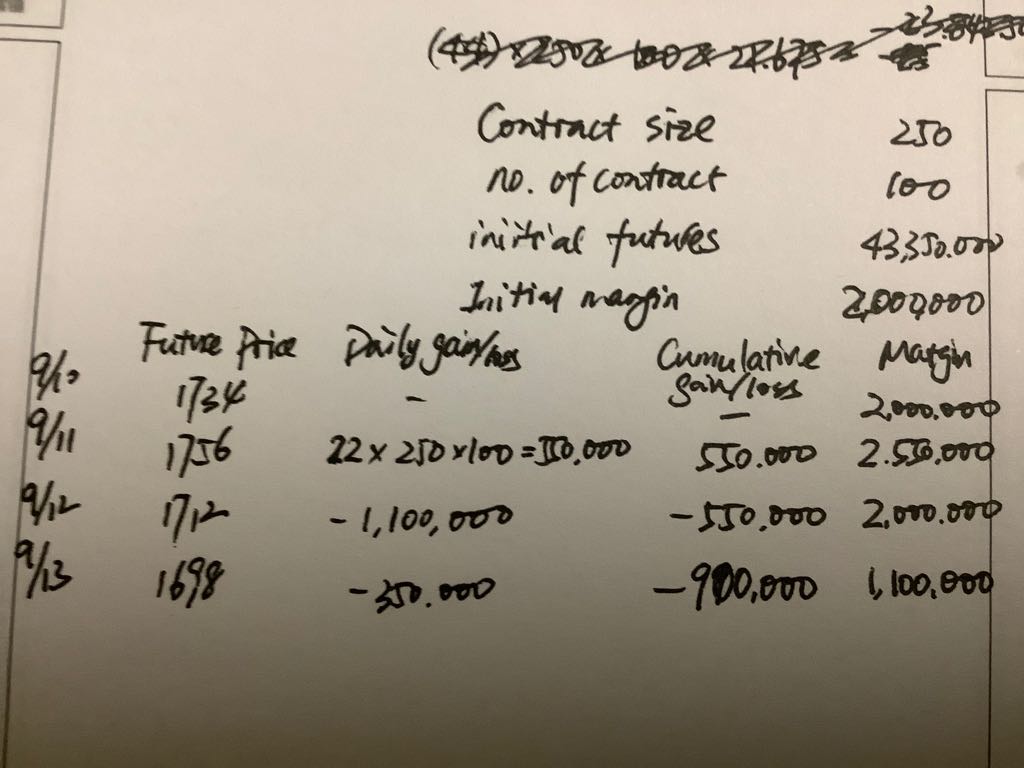 Contract size 250
no. of contract 100
initial futures 43,350.000
Initial margin 2,000,000
Future Price Daily gain/loss Cumulative gain/loss Margin
9/10 1734 - - 2,000.000
9/11 1756 22 x 250 x 100 = 550,000 550.000 2.550,000
9/12 1712 - 1,100,000 -550,000 2,000.000
9/13 1698 - 350.000 -900,000 1,100,000